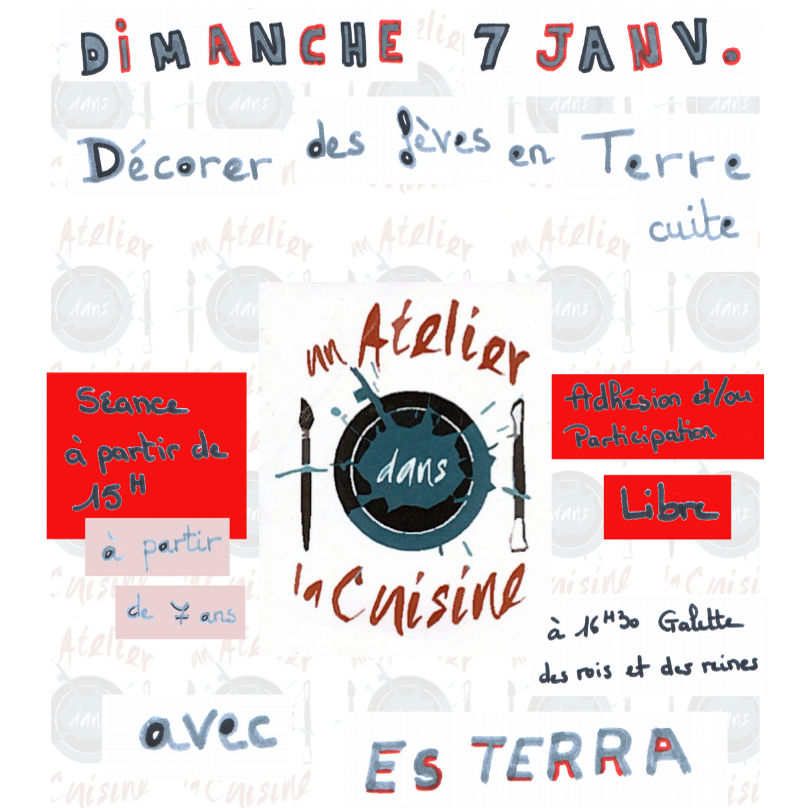 DiMANCHE 7 JANV.
Décorer des fèves en Terre
cuite
un Atelier
dans
la Cuisine
Séance
à partir de
15H
à partir
de 7 ans
Adhésion et/ou
Participation
Libre
à 16H30 Galette
des rois et des reines
avec ES TERRA